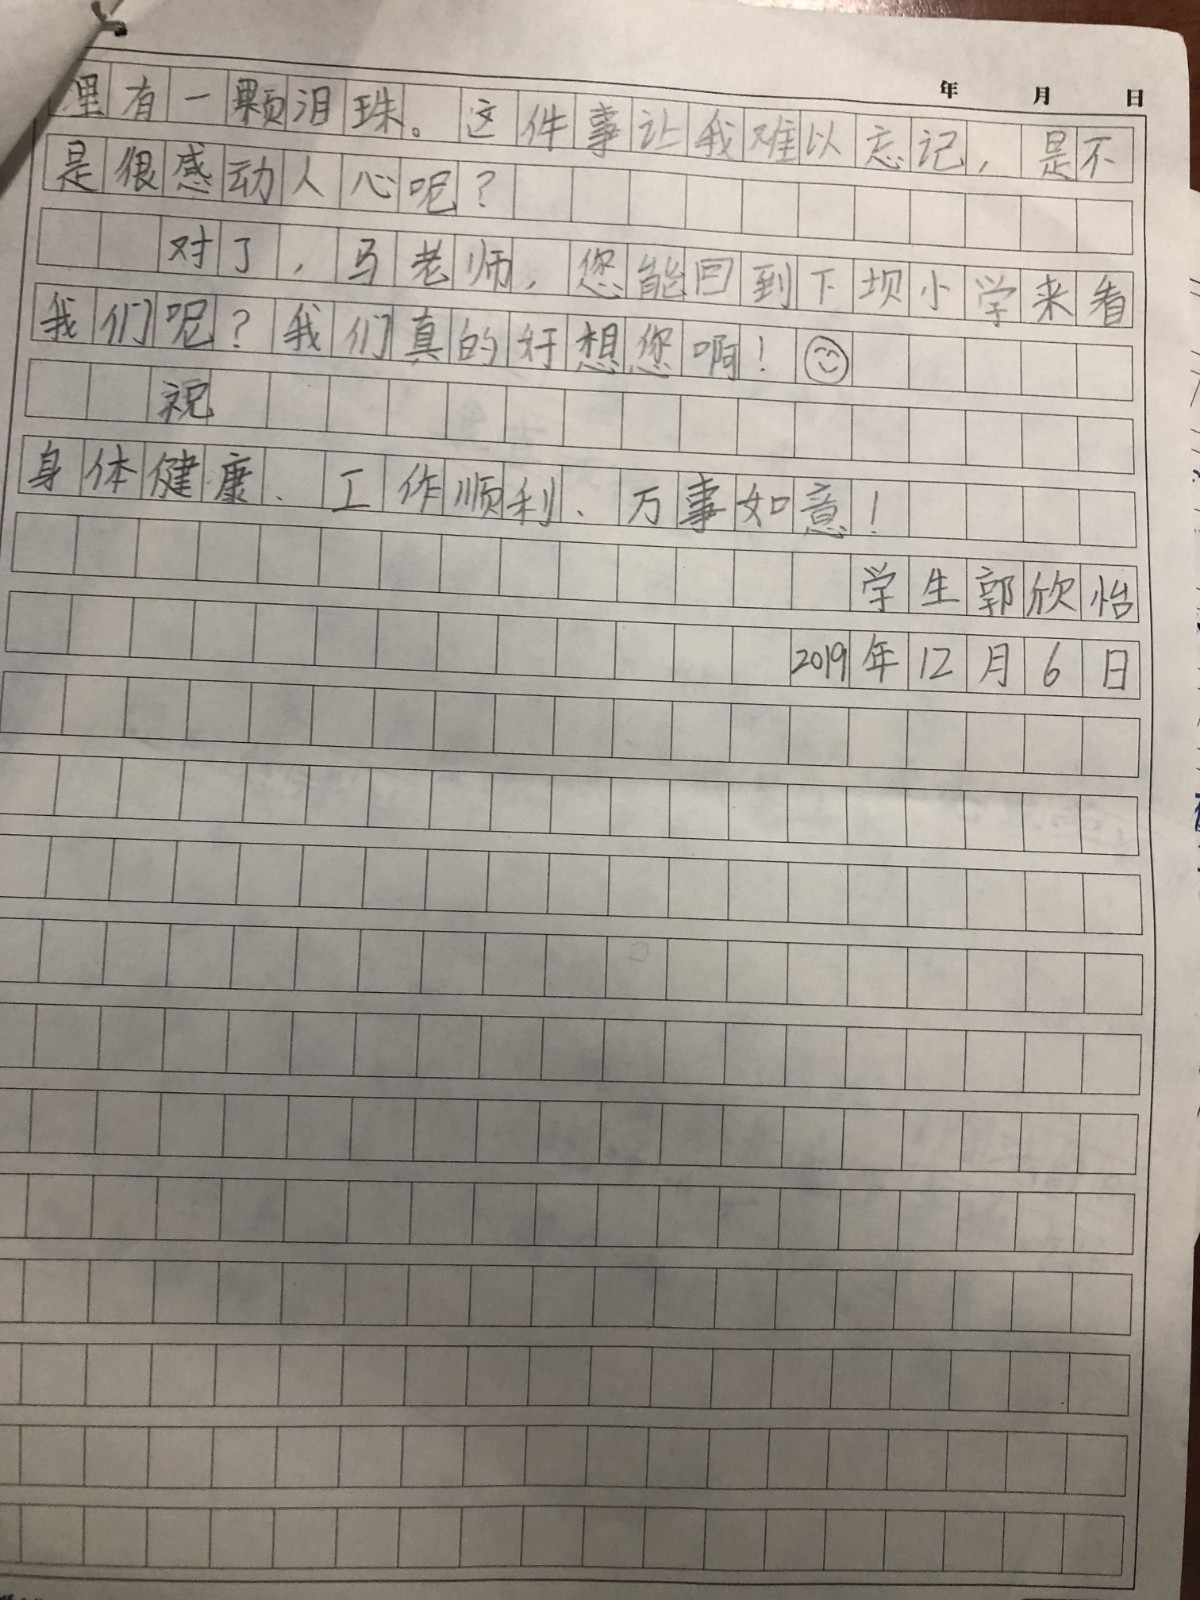 年 月 日
里有一颗泪珠。这件事让我难以忘记，是不
是很感动人心呢？
对了，马老师，您能回到下坝小学来看
我们呢？我们真的好想您啊！
祝
身体健康、工作顺利、万事如意！
学生郭欣怡
2019年12月6日